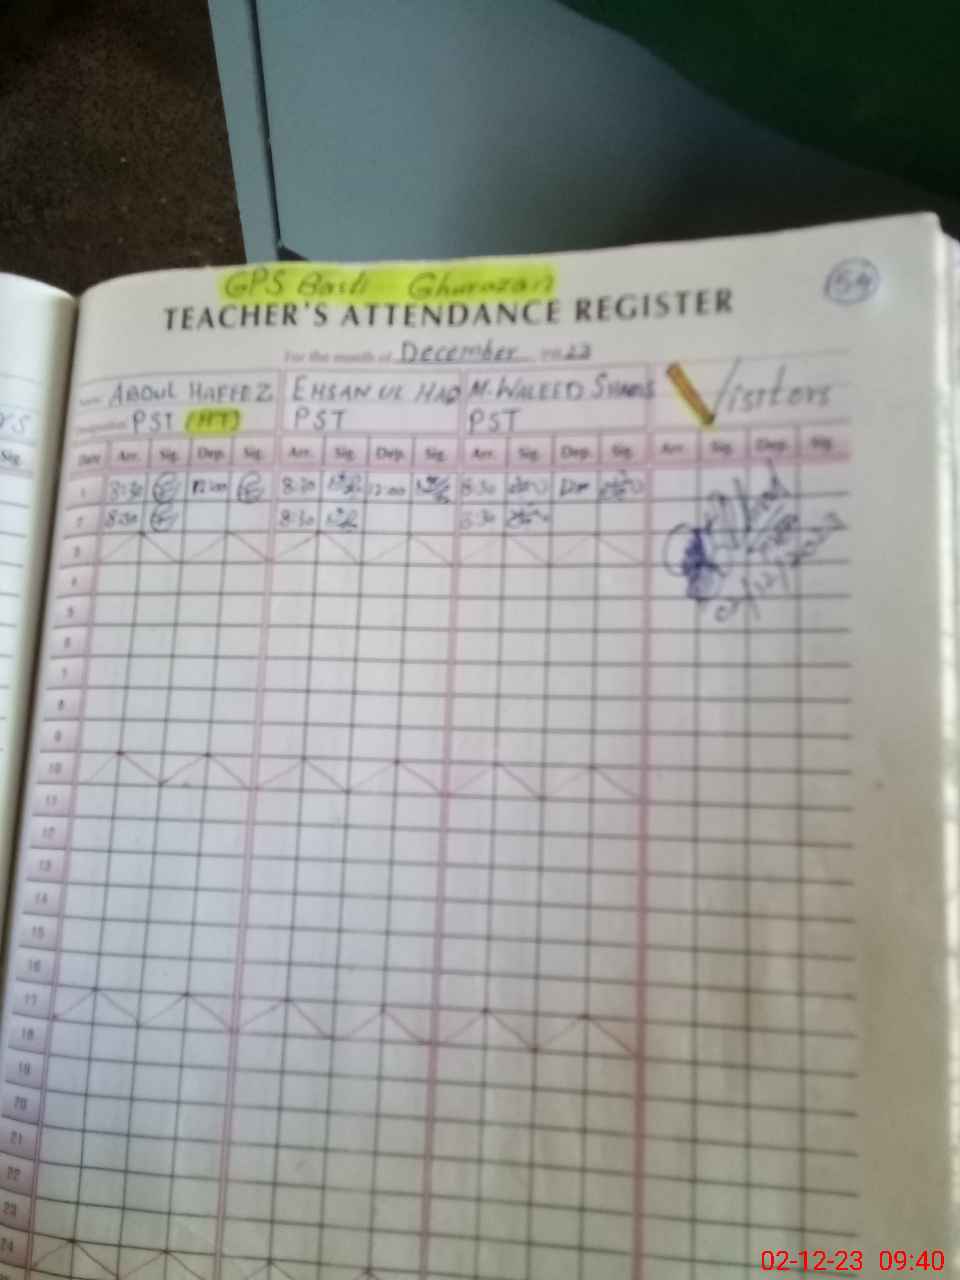 GPS Basti Ghurazan
54
TEACHER'S ATTENDANCE REGISTER
For the month of December 23
Name ABDUL HAFEEZ EHSAN UL HAQ M. WALEED SHAMS Visitors
Designation PST (HT) PST PST
Date Arr. Sig. Dep. Sig. Arr. Sig. Dep. Sig. Arr. Sig. Dep. Sig. Arr. Sig. Dep. Sig.
1 8:30 12:00 8:30 12:00 8:30
2 8:30 8:30 8:30
3
4
5
6
7
8
9
10
11
12
13
14
15
16
17
18
19
20
21
22
23
24
02/12/2023
Sig.
02-12-23 09:40